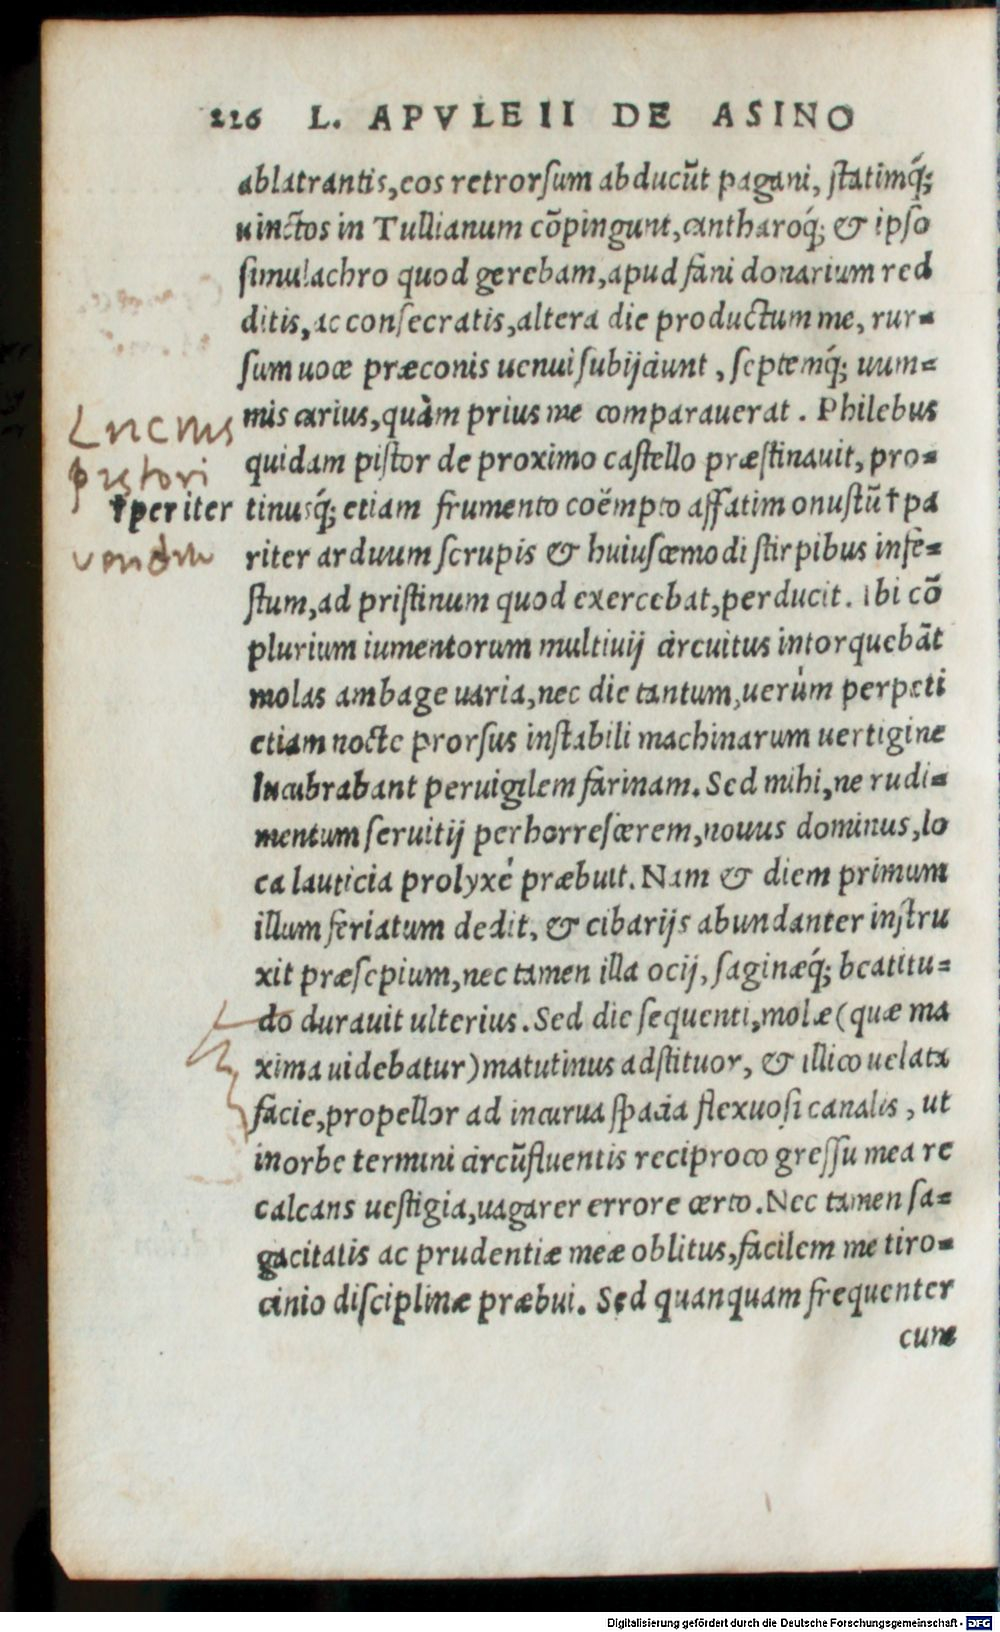 226 L. APVLEII DE ASINO
ablatrantis, eos retrorsum abducũt pagani, statimq́;
uinctos in Tullianum cõpingunt, cantharoq́; & ipso
simulachro quod gerebam, apud fani donarium red
ditis, ac consecratis, altera die productum me, rur-
sum uoce præconis uenui subijciunt, septemq́; uum-
mis carius, quàm prius me comparauerat. Philebus
quidam pistor de proximo castello præstinauit, pro-
tinusq́; etiam frumento coëmpto affatim onustũ † pa
riter arduum scrupis & huiuscemodi stirpibus infe-
stum, ad pristinum quod exercebat, perducit. Ibi cõ
plurium iumentorum multiuij circuitus intorquebãt
molas ambage uaria, nec die tantum, uerùm perpeti
etiam nocte prorsus instabili machinarum uertigine
lucubrabant peruigilem farinam. Sed mihi, ne rudi-
mentum seruitij perhorrescerem, nouus dominus, lo
ca lauticia prolyxè præbuit. Nam & diem primum
illum feriatum dedit, & cibarijs abundanter instru
xit præsepium, nec tamen illa ocij, saginæq́; beatitu-
do durauit ulterius. Sed die sequenti, molæ (quæ ma
xima uidebatur) matutinus adstituor, & illico uelata
facie, propellor ad incurua spacia flexuosi canalis, ut
in orbe termini circũfluentis reciproco gressu mea re
calcans uestigia, uagarer errore certo. Nec tamen sa-
gacitatis ac prudentiæ meæ oblitus, facilem me tiro-
cinio disciplinæ præbui. Sed quanquam frequenter
cum
Lucius
pistori
† per iter
Digitalisierung gefördert durch die Deutsche Forschungsgemeinschaft - DFG